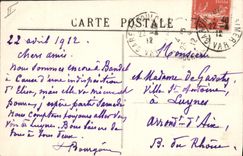 CARTE POSTALE
22 avril 1912.
Chers amis,
Nous sommes encore à Bandol
à cause d'une indisposition
d'Elise, mais elle va mieux et
pourra, espère partir demain
Nous comptons toujours aller
via Luynes. Bons baisers de
tous à tous deux.
Bourgoin
Monsieur
et Madame de
Ville St Antoine
à Luynes
Arront d'Aix,
B. du Rhône